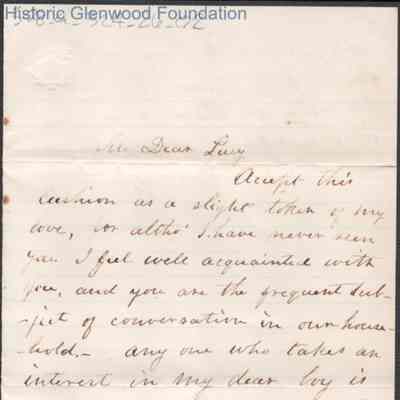 Historic Glenwood Foundation
My Dear Lucy
Accept this
cushion as a slight token of my
love, for altho' I have never seen
you I feel well acquainted with
you, and you are the frequent sub-
-ject of conversation in our house-
-hold,- any one who takes an
interest in my dear boy is